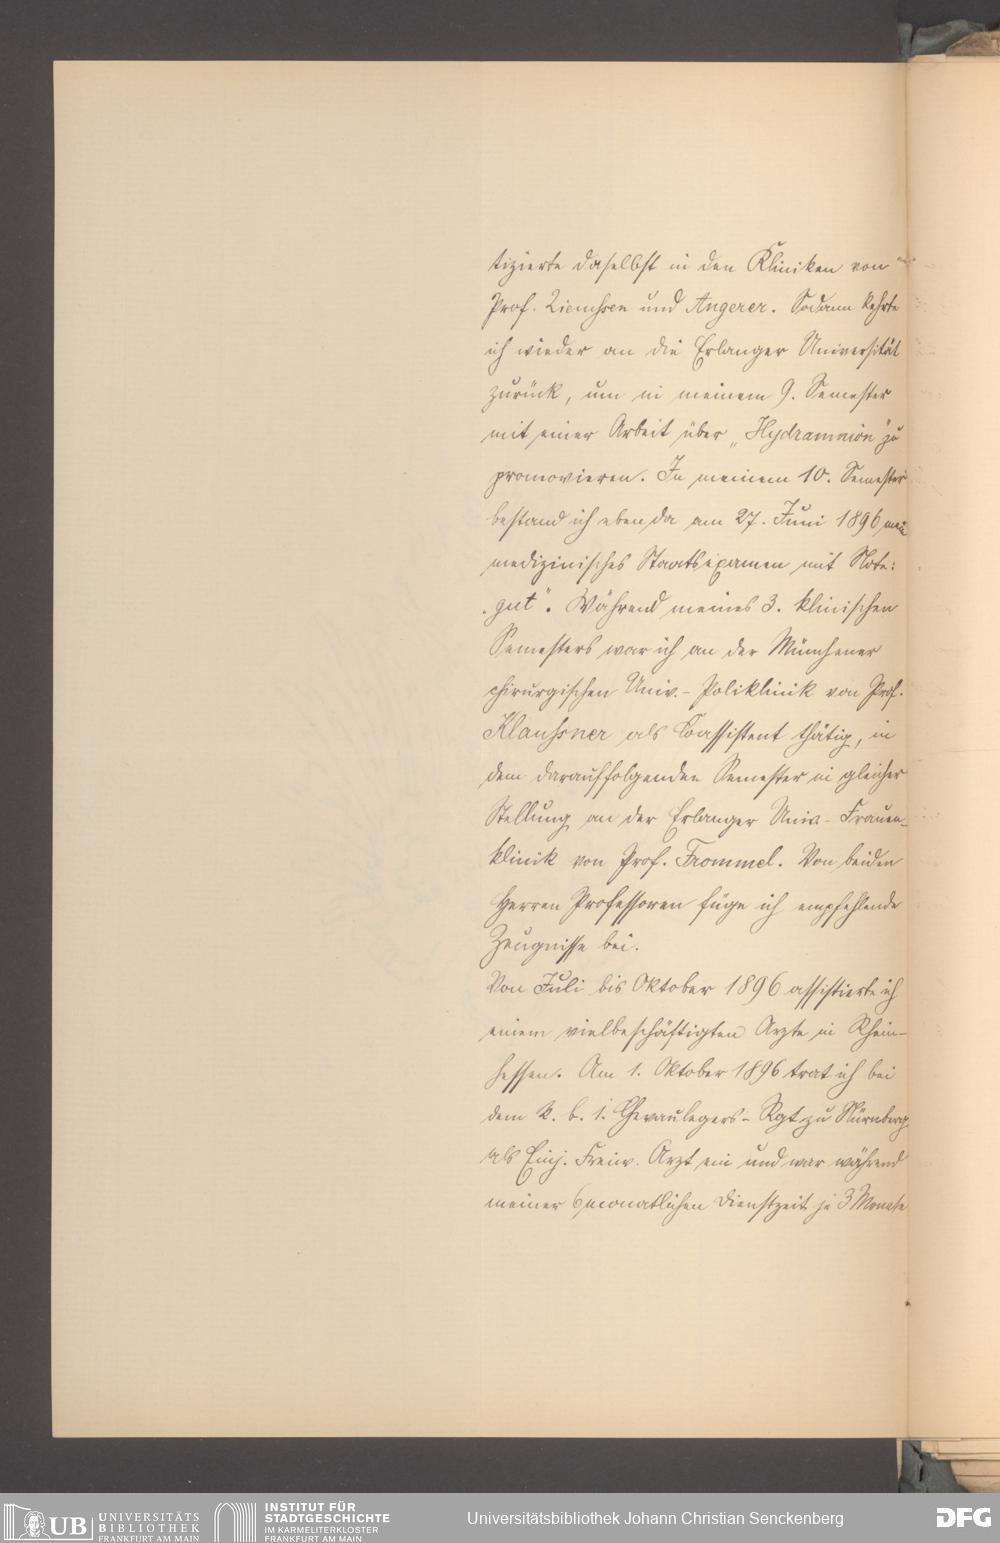 tizierte daselbst in den Kliniken von
Prof. Ziemssen und Angerer. Sodann kehrte
ich wieder an die Erlanger Universität
zurück, um in meinem 9. Semester
mit einer Arbeit über „Hydramnion" zu
promovieren. In meinem 10. Semester
bestand ich eben da am 27. Juni 1896 mein
medizinisches Staatsexamen mit Note:
„gut". Während meines 3. klinischen
Semesters war ich an der Münchener
chirurgischen Univ.- Poliklinik von Prof.
Klaussner als Coassistent thätig, in
dem darauffolgenden Semester in gleicher
Stellung an der Erlanger Univ.- Frauen-
klinik von Prof. Frommel. Von beiden
Herren Professoren füge ich empfehlende
Zeugnisse bei.
Von Juli bis Oktober 1896 assistierte ich
einem vielbeschäftigten Arzte in Rhein-
hessen. Am 1. Oktober 1896 trat ich bei
dem k. b. 1. Chevaulegers- Rgt. zu Nürnberg
als Einj. Freiw. Arzt ein und war während
meiner 6monatlichen Dienstzeit je 3 Monate
UB UNIVERSITÄTS
BIBLIOTHEK
FRANKFURT AM MAIN
INSTITUT FÜR
STADTGESCHICHTE
IM KARMELITERKLOSTER
FRANKFURT AM MAIN
Universitätsbibliothek Johann Christian Senckenberg
DFG